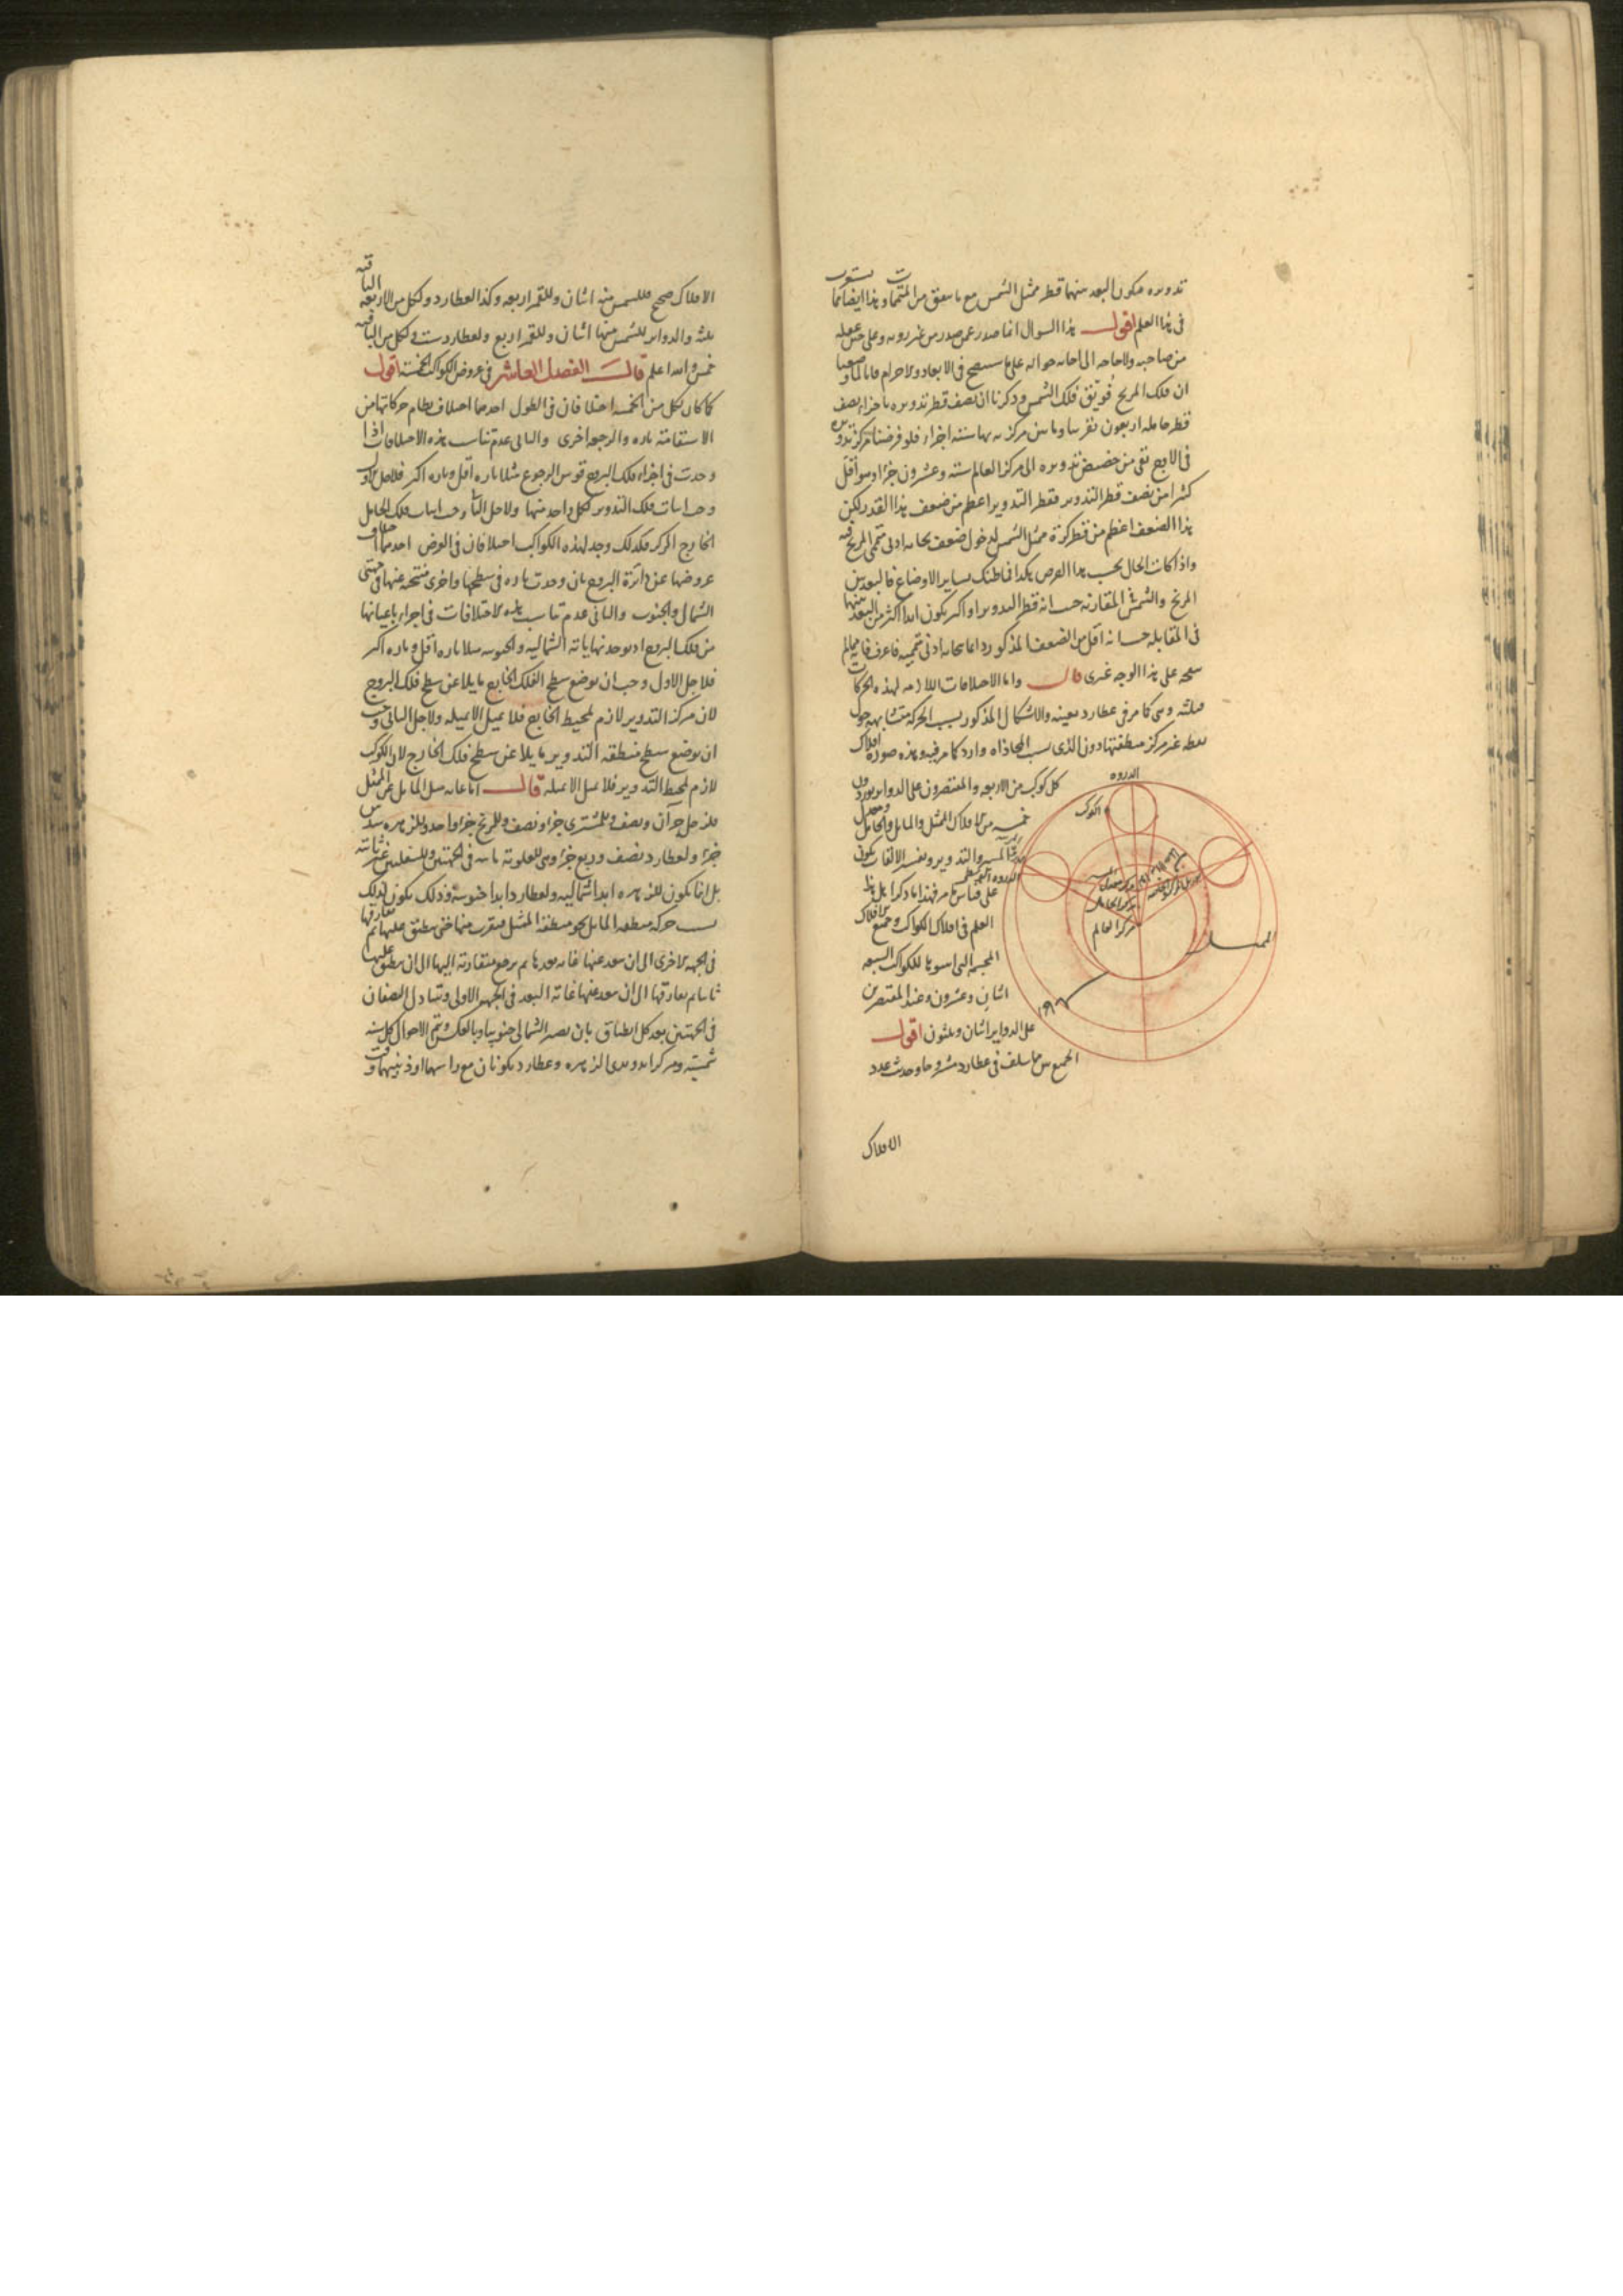 تدويره فيكون البعد بينهما قطر ممثل الشمس مع ما يتفق من المتممات وهذا ايضا مما يستغرب
في هذا العلم اقول هذا السوال انما صدر عمن صدر من غير رويه وعلى حين غفله
من صاحبه ولا حاجه الى احاله جوابه على ما سيصح في الابعاد والاجرام فانا لما وضعنا
ان فلك المريخ فويق فلك الشمس وذكرنا ان نصف قطر تدويره باجزاء نصف
قطر حامله اربعون تقريبا وما بين مركزيهما سته اجزاء فلو فرضنا مركز تدويره
في الاوج بقى من حضيض تدويره الى مركز العالم سته وعشرون جزءا وهو اقل
كثيرا من نصف قطر التدوير فقطر التدوير اعظم من ضعف هذا القدر لكن
هذا الضعف اعظم من قطر كرة ممثل الشمس لدخول ضعف ثخانه ادنى متممى المريخ فيه
واذا كان الحال بحسب هذا الفرض هكذا فما ظنك بساير الاوضاع فالبعد بين
المريخ والشمس في المقارنه حسب انه قطر التدوير او اكبر يكون ابدا اكثر من البعد بينهما
في المقابله حسب انه اقل من الضعف المذكور دايما ثخانه ادنى متمميه فاعرف فانه مما لم
يتنبه على هذا الوجه غيرى قال واما الاختلافات اللازمه لهذه الحركات
فثلثه وهى كما مر في عطارد بعينه والاشكال المذكور بسبب الحركه متشابهه حول
نقطه غير مركز منطقتها دون الذى بسبب المحاذاه وارد كما مر فيه وهذه صورة افلاك
كل كوكب من الاربعه والمقتصرون على الدواير يوردون
خمسه من الافلاك الممثل والمايل والحامل ومعدل
المسير والتدوير وتفسير الالقاب يكون
على قياس ما مر فهذا ما ذكره اهل هذا
العلم في افلاك الكواكب وجميع الافلاك
المجسمه التى اثبتوها للكواكب السبعه
اثنان وعشرون وعند المقتصرين
على الدواير اثنان وثلثون اقول
الجميع مما سلف في عطارد مشروحا وحديث عدد
الافلاك
الذروه
الكوكب
مركز معدل المسير
مركز الحامل
مركز العالم
الممثل
الافلاك صحيح فللشمس منها اثنان وللقمر اربعه وكذا لعطارد ولكل من الاربعه الباقيه
ثلثه والدواير للشمس منها اثنان وللقمر اربع ولعطارد ست ولكل من الباقيه
خمس والله اعلم قال الفصل العاشر في عروض الكواكب الخمسة اقول
كما كان لكل من الخمسه اختلافان في الطول احدهما اختلاف نظام حركاتها من
الاستقامة تاره والرجوع اخرى والثانى عدم تناسب هذه الاختلافات اذا
وجدت في اجزاء فلك البروج قوس الرجوع مثلا تاره اقل وتاره اكبر فلاجل الاول
وجب اثبات فلك التدوير لكل واحد منها ولاجل الثانى وجب اثبات فلك الحامل
الخارج المركز فكذلك وجد لهذه الكواكب اختلافان في العرض احدهما اختلاف
عروضها عن دائرة البروج بان وجدت تاره في سطحها واخرى متنحيه عنها في جهتى
الشمال والجنوب والثانى عدم تناسب هذه الاختلافات في اجزاء باعيانها
من فلك البروج اذ يوجد نهاياته الشماليه والجنوبيه مثلا تاره اقل وتاره اكبر
فلاجل الاول وجب ان يوضع سطح الفلك الخارج مايلا عن سطح فلك البروج
لان مركز التدوير لازم لمحيط الخارج فلا يميل الا بميله ولاجل الثانى وجب
ان يوضع سطح منطقه التدوير مايلا عن سطح فلك الخارج لان الكوكب
لازم لمحيط التدوير فلا يميل الا بميله قال اما غايه ميل المايل عن الممثل
فلزحل جزآن ونصف وللمشترى جزء ونصف وللمريخ جزء واحد وللزهره سدس
جزء ولعطارد نصف وربع جزء وهى للعلويه ثابته في الجهتين وللسفليين غير ثابته
بل انما يكون للزهره ابدا شماليه ولعطارد ابدا جنوبيه وذلك يكون لذلك
بسبب حركه منطقه المايل نحو منطقة الممثل فتقرب منها حتى ينطبق عليها ثم تفارقها
في الجهه الاخرى الى ان يبعد عنها غايه بعدها ثم يرجع متقاربة اليها الى ان ينطبق عليها
ثانيا ثم تفارقها الى ان يبعد عنها غاية البعد في الجهه الاولى ويتبادل النصفان
في الجهتين بعد كل انطباق بان يصير الشمالى جنوبيا وبالعكس ويتم الاحوال كل سنه
شمسيه ومركز تدويرى الزهره وعطارد يكونان مع راسهما او ذنبهما وقت